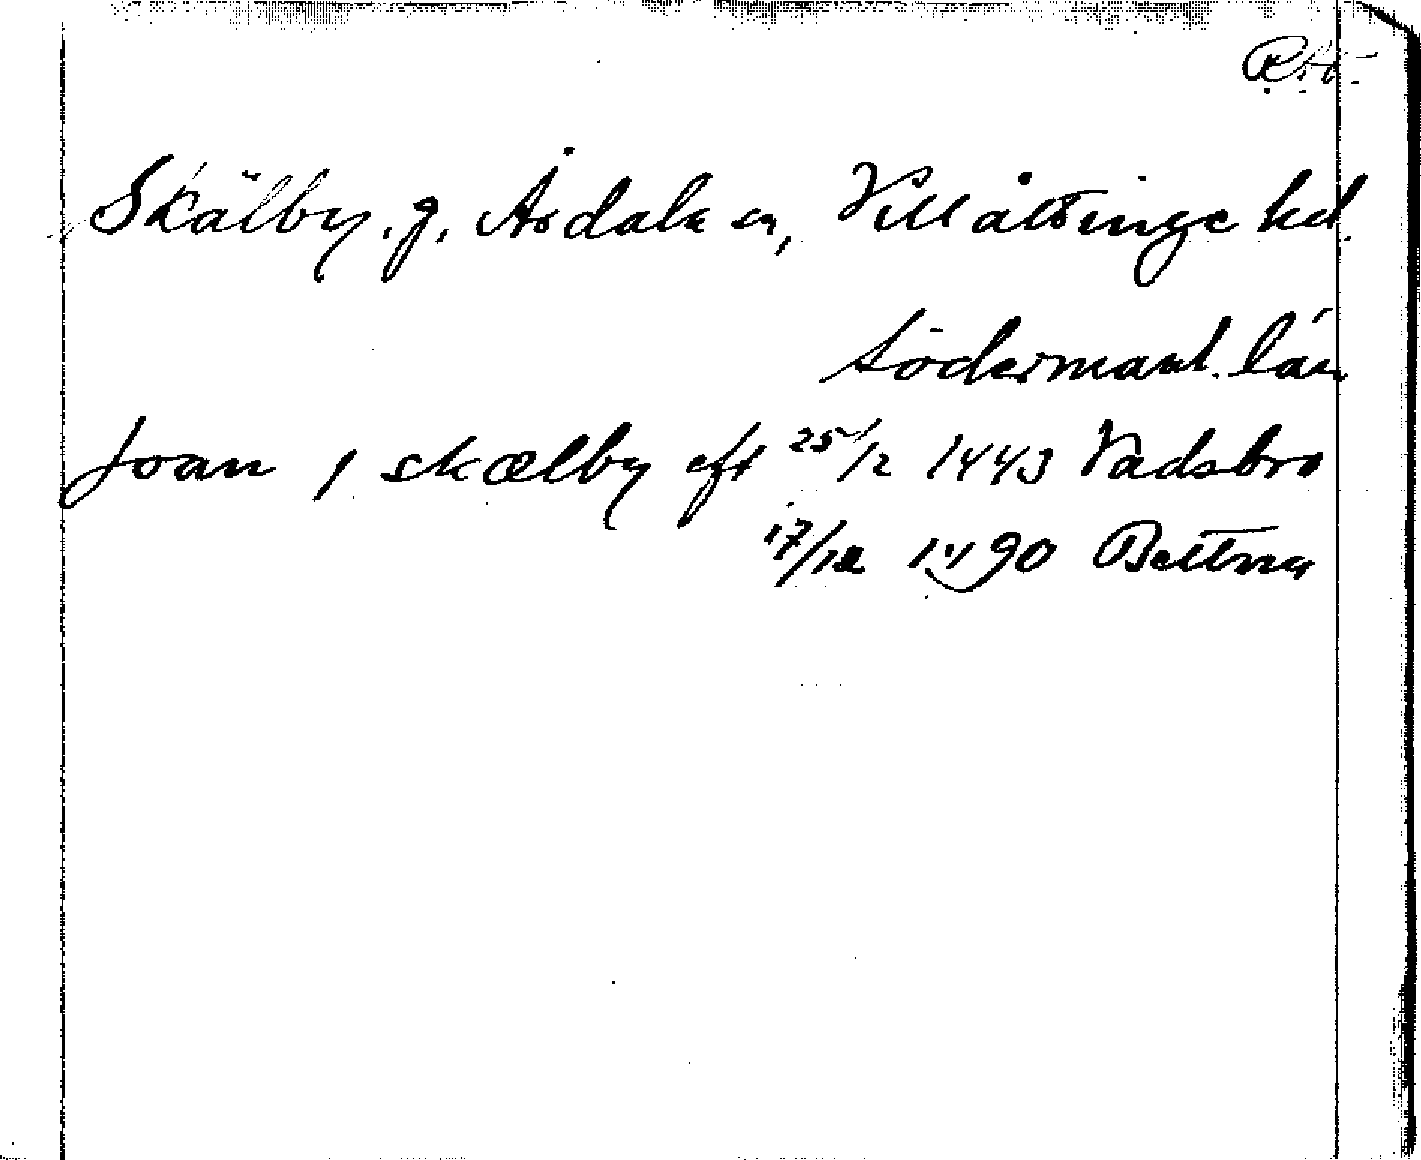 Skälby, g, Årdala sn, Villåttinge hd.
Södermanl. län
Joan j skælby eft 25/12 1443 Vadsbro
17/12 1490 Bettna